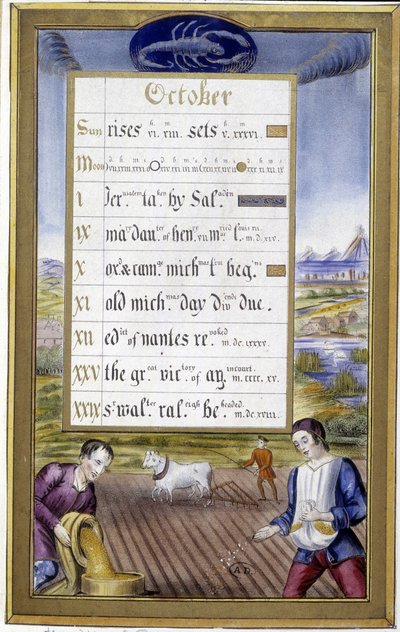 October
Sun rises h. vi. m. xiii. sets h. v. m. xxxvi.
Moon
I Jer.usalem ta.ken by Sal.adin
IX mary dau.ter of hen.ry vii mar.ried louis xii. f. m.d.xiv.
X oxd. & cam.ge mich.mas t. beg.ins
XI old mich.mas day div.idends due.
XII ed.ict of nantes re.voked m.dc.lxxxv.
XXV the gr.eat vic.tory of ag.incourt. m.cccc.xv.
XXIX sr. wal.ter ral.eigh be.headed. m.dc.xviii.
A D